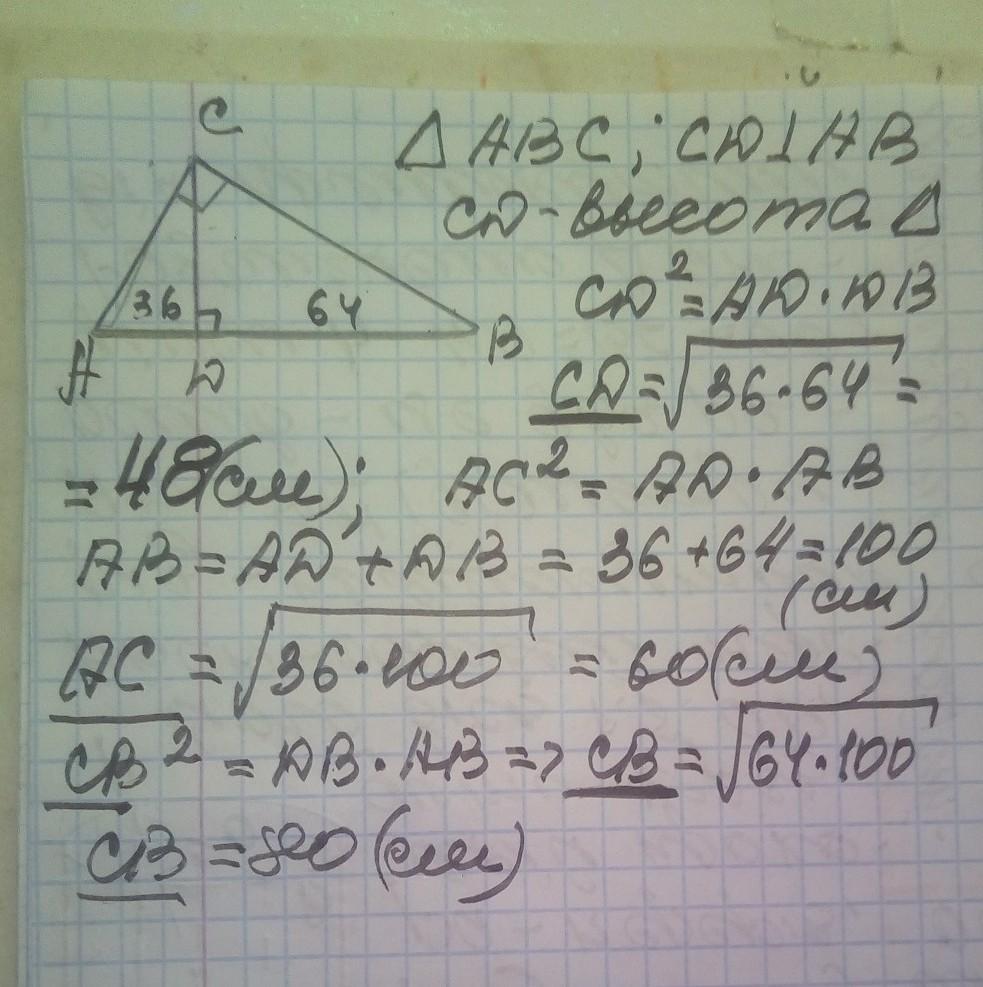 C
△ ABC ; CD⊥AB
CD - высота △
36 64
CD² = AD · DB
A D B
CD = √36·64 =
= 48(см); AC² = AD · AB
AB = AD + DB = 36+64=100
(см)
AC = √36·100 = 60(см)
CB² = DB · AB => CB = √64·100
CB = 80 (см)